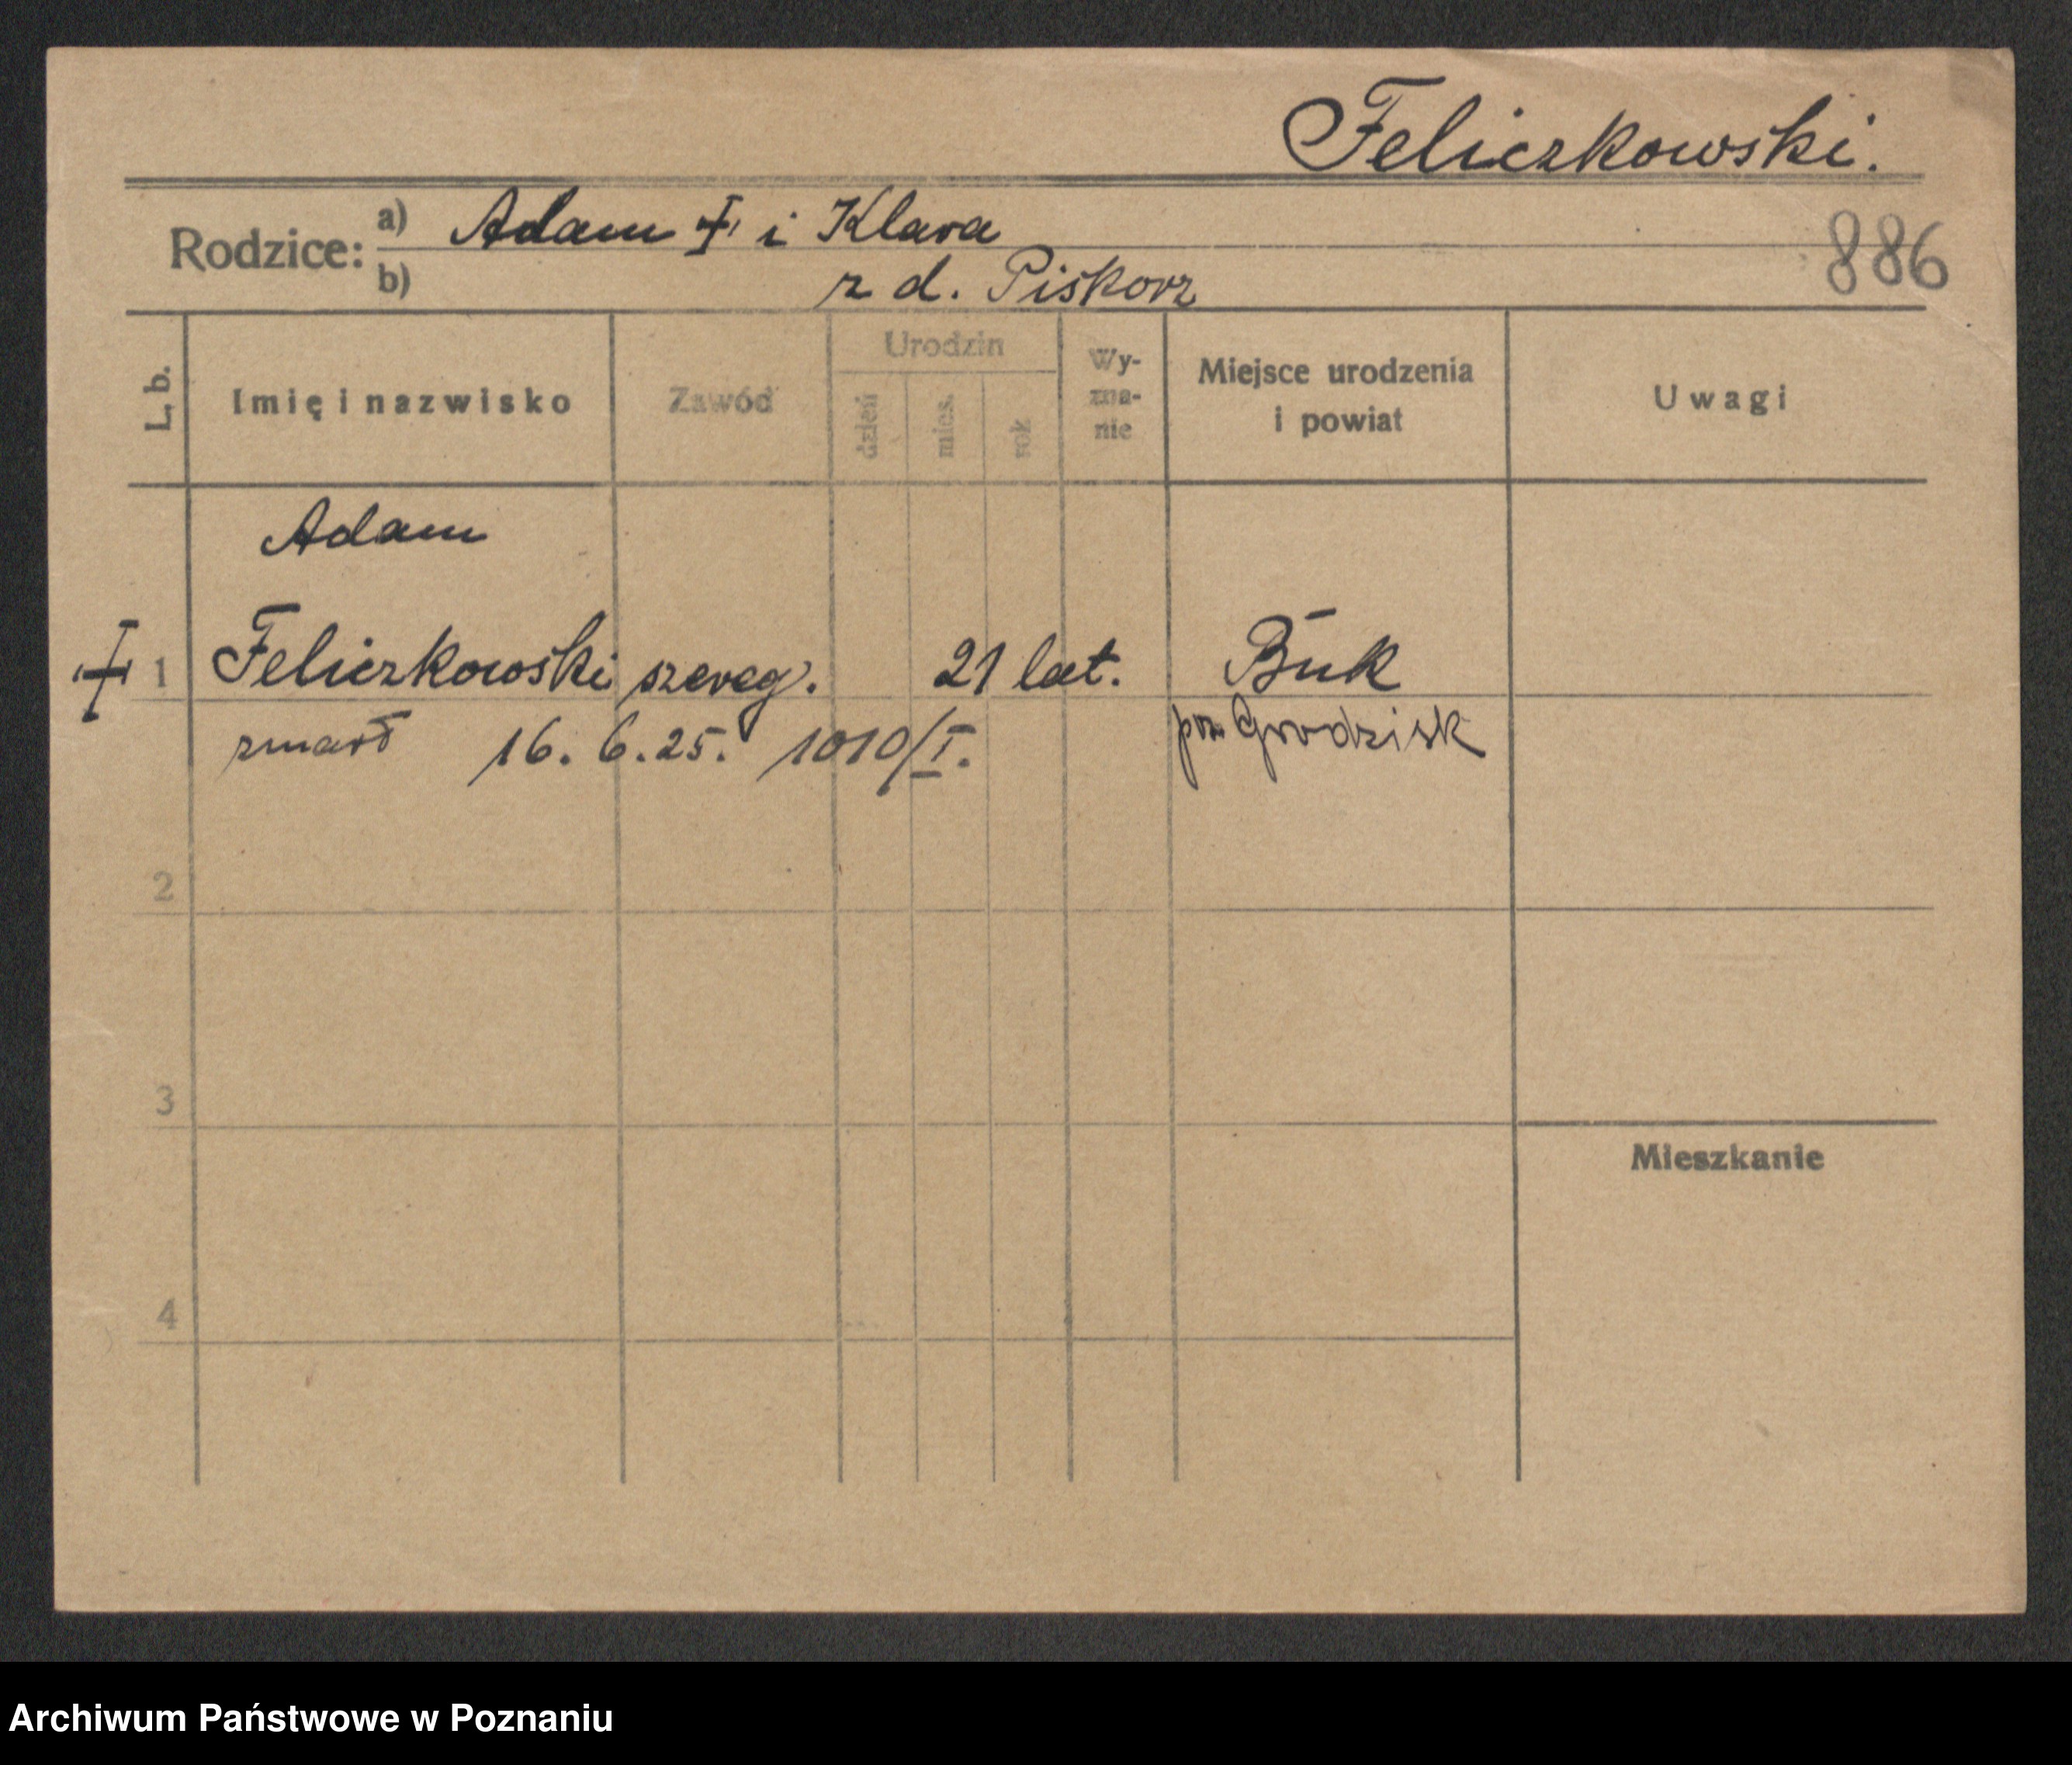 Feliczkowski.
Rodzice: a) Adam † i Klara
b) z d. Piskorz
886
L. b.
Imię i nazwisko
Zawód
Urodzin
dzień
mies.
rok
Wy-
zna-
nie
Miejsce urodzenia
i powiat
Uwagi
Adam
† 1 Feliczkowski szereg. 21 lat. Buk
zmarł 16. 6. 25. 1010/I. pow Grodzisk
2
3
Mieszkanie
4
Archiwum Państwowe w Poznaniu